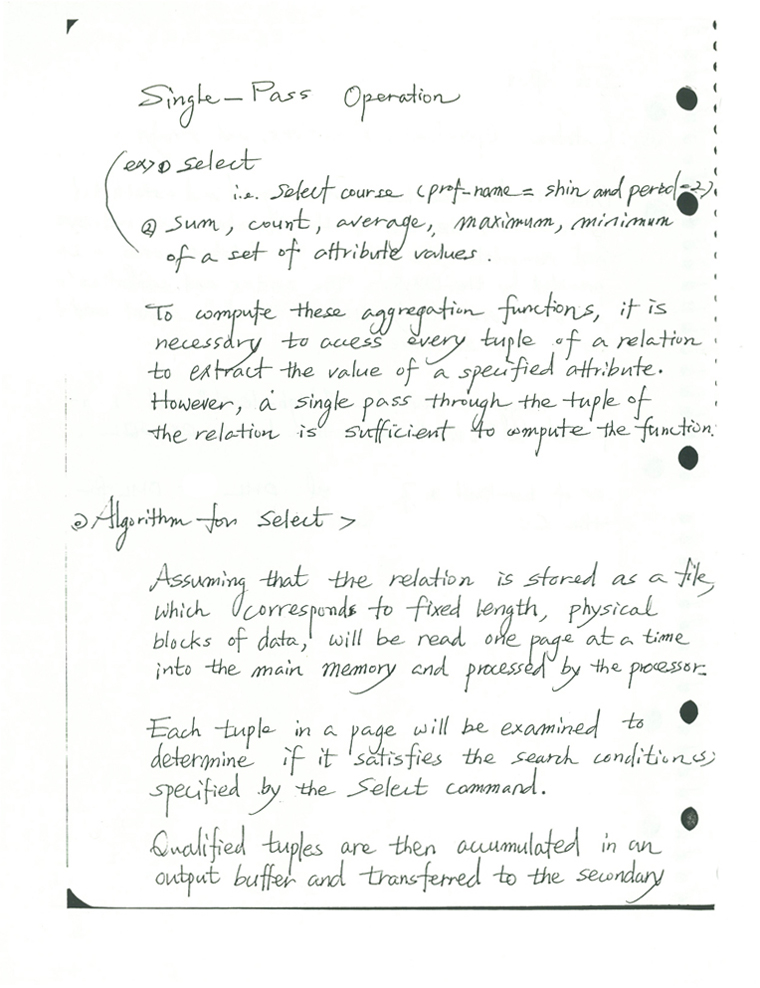 Single-Pass Operation
(ex> ① select
i.e. select course (prof-name = shin and period=2)
② sum, count, average, maximum, minimum
of a set of attribute values.
To compute these aggregation functions, it is
necessary to access every tuple of a relation
to extract the value of a specified attribute.
However, a single pass through the tuple of
the relation is sufficient to compute the function.
Algorithm for select >
Assuming that the relation is stored as a file,
which corresponds to fixed length, physical
blocks of data, will be read one page at a time
into the main memory and processed by the processor.
Each tuple in a page will be examined to
determine if it satisfies the search condition(s)
specified by the Select command.
Qualified tuples are then accumulated in an
output buffer and transferred to the secondary